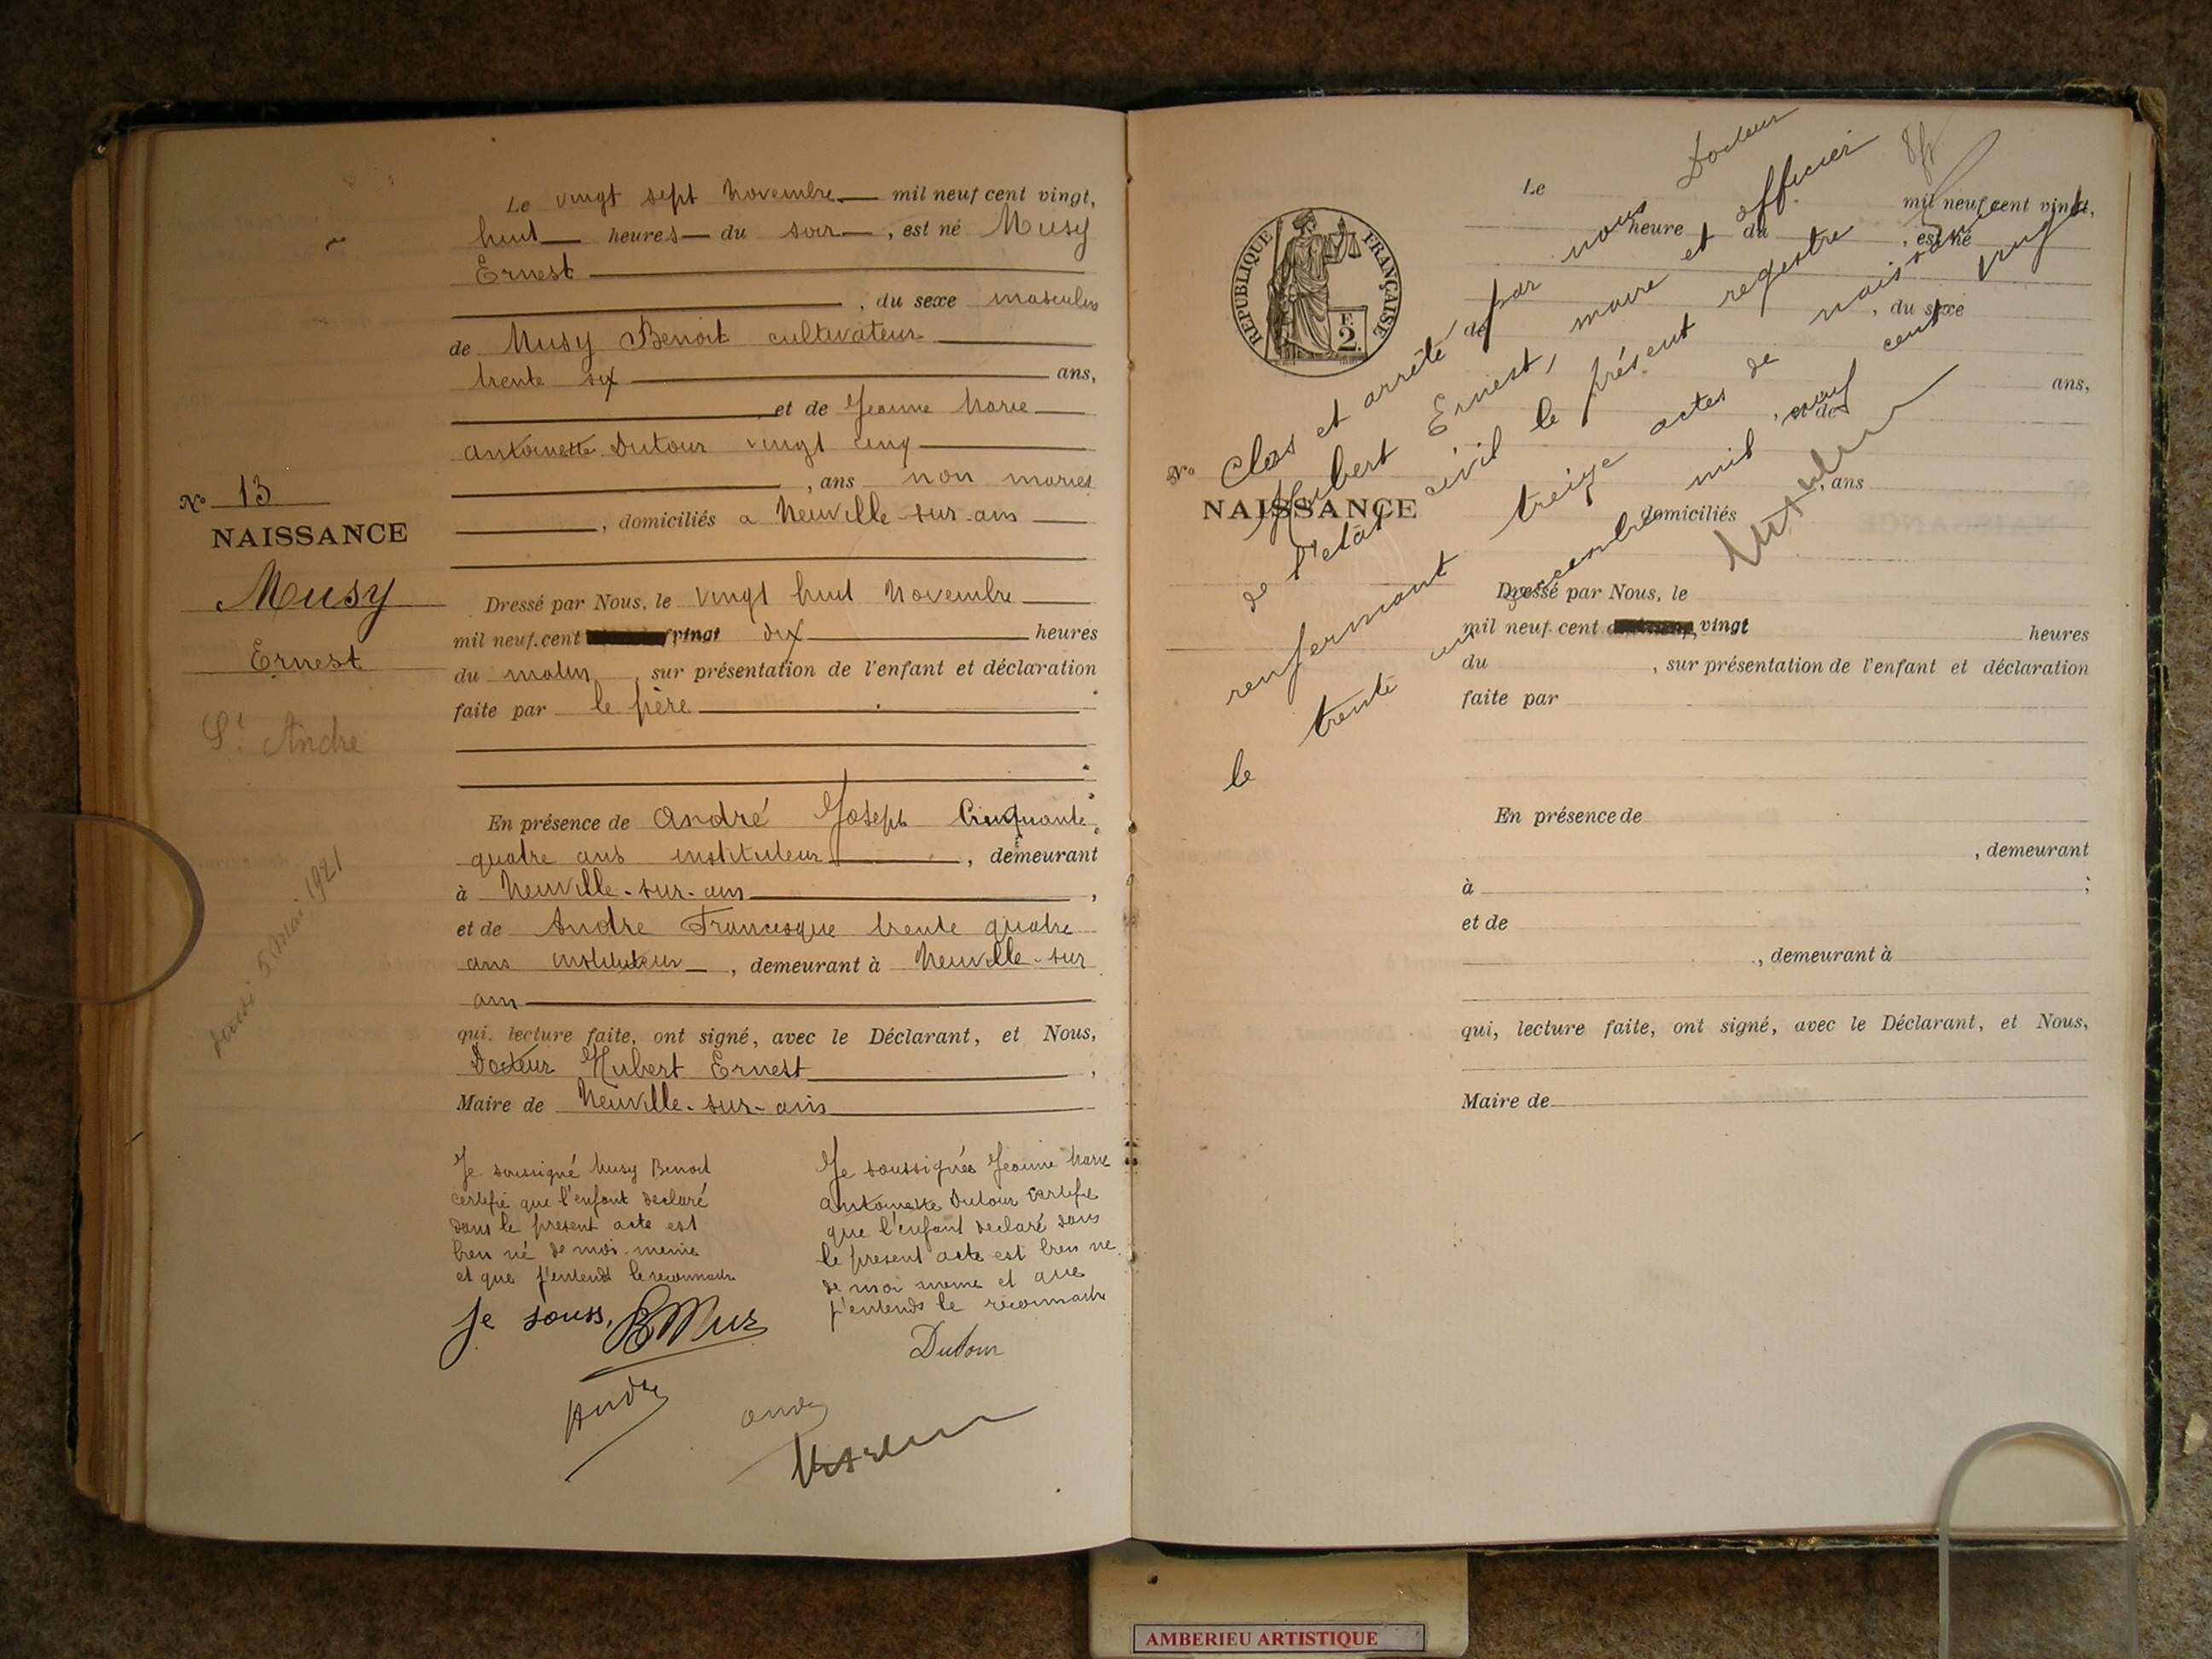 Le vingt sept Novembre mil neuf cent vingt,
huit heures du soir, est né Musy
Ernest
, du sexe masculin
de Musy Benoit cultivateur
trente six ans,
et de Jeanne Marie
Antoinette Dutour vingt cinq
, ans non mariés
, domiciliés a Neuville-sur-ain
N° 13
NAISSANCE
Musy
Ernest
St Andre
jeudi 5 Mai 1921
Dressé par Nous, le vingt huit Novembre
mil neuf cent vingt dix heures
du matin, sur présentation de l'enfant et déclaration
faite par le père
En présence de André Joseph Cinquante
quatre ans instituteur, demeurant
à Neuville-sur-ain,
et de Andre Francisque trente quatre
ans instituteur, demeurant à Neuville-sur
ain
qui, lecture faite, ont signé, avec le Déclarant, et Nous,
Docteur Hubert Ernest,
Maire de Neuville-sur-ain
Je soussigné Musy Benoit
certifie que l'enfant declaré
dans le present acte est
bien né de moi-meme
et que j'entends le reconnaitre
Je souss, B Mus
Je soussignée Jeanne Marie
Antoinette Dutour certifie
que l'enfant declaré dans
le present acte est bien ne
de moi meme et que
j'entends le reconnaitre
Dutour
André
André
REPUBLIQUE FRANÇAISE
F.
2.
N°
NAISSANCE
Clos et arrêté par nous Docteur
Hubert Ernest, maire et officier
de l'etat civil le présent registre
renfermant treize actes de naissance
le trente un decembre mil neuf cent vingt
Le mil neuf cent vingt,
heure du , est né
, du sexe
de
ans,
et de
, ans
domiciliés
Dressé par Nous, le
mil neuf cent vingt heures
du , sur présentation de l'enfant et déclaration
faite par
En présence de
, demeurant
à ;
et de
, demeurant à
qui, lecture faite, ont signé, avec le Déclarant, et Nous,
Maire de
AMBERIEU ARTISTIQUE